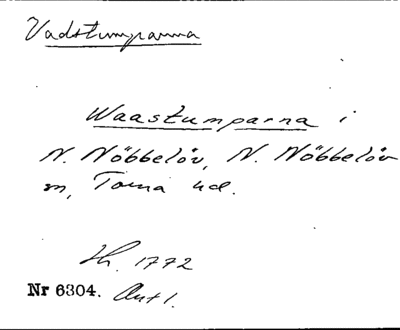 Vadstumparna
Waastumparna i
N. Nöbbelöv, N. Nöbbelöv
m, Torna hd.
Sk. 1772
Nr 6304. Avt 1.